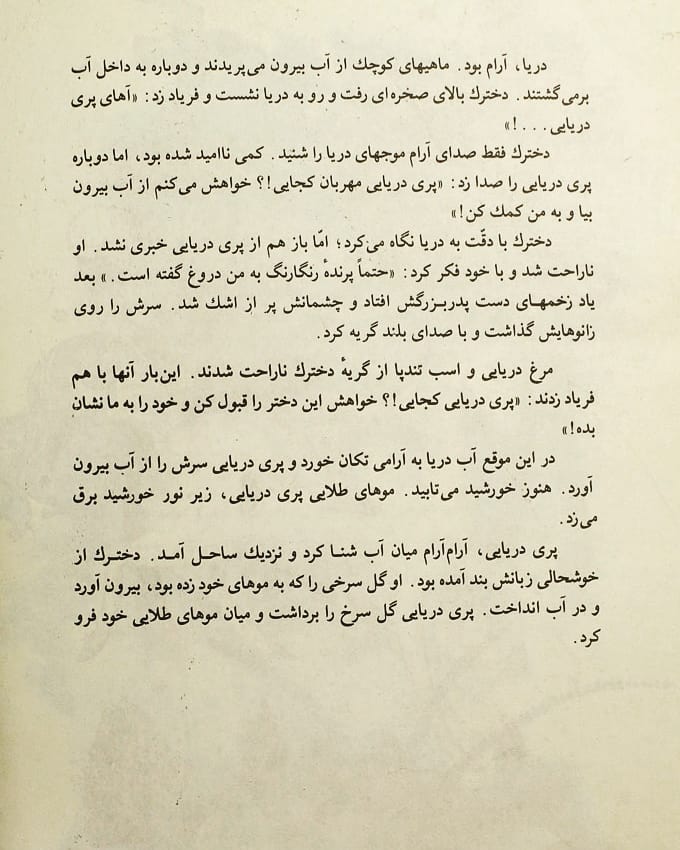 دریا، آرام بود. ماهیهای کوچك از آب بیرون می‌پریدند و دوباره به داخل آب
برمی‌گشتند. دخترك بالای صخره‌ای رفت و رو به دریا نشست و فریاد زد: «آهای پری
دریایی...!»
دخترك فقط صدای آرام موجهای دریا را شنید. کمی ناامید شده بود، اما دوباره
پری دریایی را صدا زد: «پری دریایی مهربان کجایی!؟ خواهش می‌کنم از آب بیرون
بیا و به من کمك کن!»
دخترك با دقّت به دریا نگاه می‌کرد؛ امّا باز هم از پری دریایی خبری نشد. او
ناراحت شد و با خود فکر کرد: «حتماً پرندهٔ رنگارنگ به من دروغ گفته است.» بعد
یاد زخمهـای دست پدربـزرگش افتاد و چشمانش پر از اشك شد. سرش را روی
زانوهایش گذاشت و با صدای بلند گریه کرد.
مرغ دریایی و اسب تندپا از گریهٔ دخترك ناراحت شدند. این‌بار آنها با هم
فریاد زدند: «پری دریایی کجایی!؟ خواهش این دختر را قبول کن و خود را به ما نشان
بده!»
در این موقع آب دریا به آرامی تکان خورد و پری دریایی سرش را از آب بیرون
آورد. هنوز خورشید می‌تابید. موهای طلایی پری دریایی، زیر نور خورشید برق
می‌زد.
پری دریایی، آرام‌آرام میان آب شنـا کرد و نزدیك ساحـل آمـد. دختـرك از
خوشحالی زبانش بند آمده بود. او گل سرخی را که به موهای خود زده بود، بیرون آورد
و در آب انداخت. پری دریایی گل سرخ را برداشت و میان موهای طلایی خود فرو
کرد.